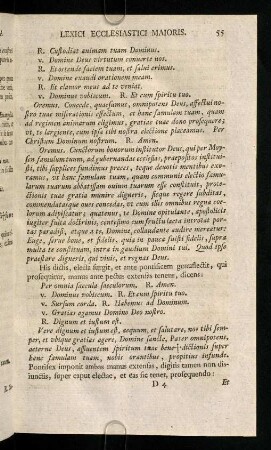 LEXICI ECCLESIASTICI MAIORIS. 55
R. Custodiat animam tuam Dominus.
v. Domine Deus virtutum conuerte nos.
R. Et ostende faciem tuam, et salui erimus.
v. Domine exaudi orationem meam.
R. Et clamor meus ad te veniat.
v. Dominus vobiscum. R. Et cum spiritu tuo.
Oremus. Concede, quaesumus, omnipotens Deus, affectui no-
stro tuae miserationis effectum, et hanc famulam tuam, quam
ad regimen animarum eligimus, gratiae tuae dono prosequere;
vt, te largiente, cum ipsa tibi nostra electione placeamus. Per
Christum Dominum nostrum. R. Amen.
Oremus. Cunctorum bonorum institutor Deus, qui per Moy-
sen famulum tuum, ad gubernandas ecclesias, praepositos instituisti,
tibi supplices fundimus preces, teque deuotis mentibus exo-
ramus, vt hanc famulam tuam, quam communis electio famu-
larum tuarum abbatissam ouium tuarum esse constituit, prote-
ctionis tuae gratia munire digneris, sicque regere subditas,
commendatasque oues concedas, et cum illis omnibus regna coe-
lorum adipiscatur; quatenus, te Domine opitulante, apostolicis
iugiter fulta doctrinis, centesimo cum fructu laeta introëat por-
tas paradisi, atque a te, Domine, collaudante audire mereatur:
Euge, serue bone, et fidelis, quia in pauca fuisti fidelis, supra
multa te constituam, intra in gaudium Domini tui. Quod ipse
praestare digneris, qui viuis, et regnas Deus.
His dictis, electa surgit, et ante pontificem genuflectit, qui
prosequitur, manus ante pectus extensis tenens, dicens:
Per omnia saecula saeculorum. R. Amen.
v. Dominus vobiscum. R. Et cum spiritu tuo.
v. Sursum corda. R. Habemus ad Dominum.
v. Gratias agamus Domino Deo nostro.
R. Dignum et iustum est.
Vere dignum et iustum est, aequum, et salutare, nos tibi sem-
per, et vbique gratias agere, Domine sancte, Pater omnipotens,
aeterne Deus, affluentem spiritum tuae bene†dictionis super
hanc famulam tuam, nobis orantibus, propitius infunde.
Pontifex imponit ambas manus extensas, digitis tamen non dis-
iunctis, super caput electae, et eas sic tenet, prosequendo:
D 4 Et